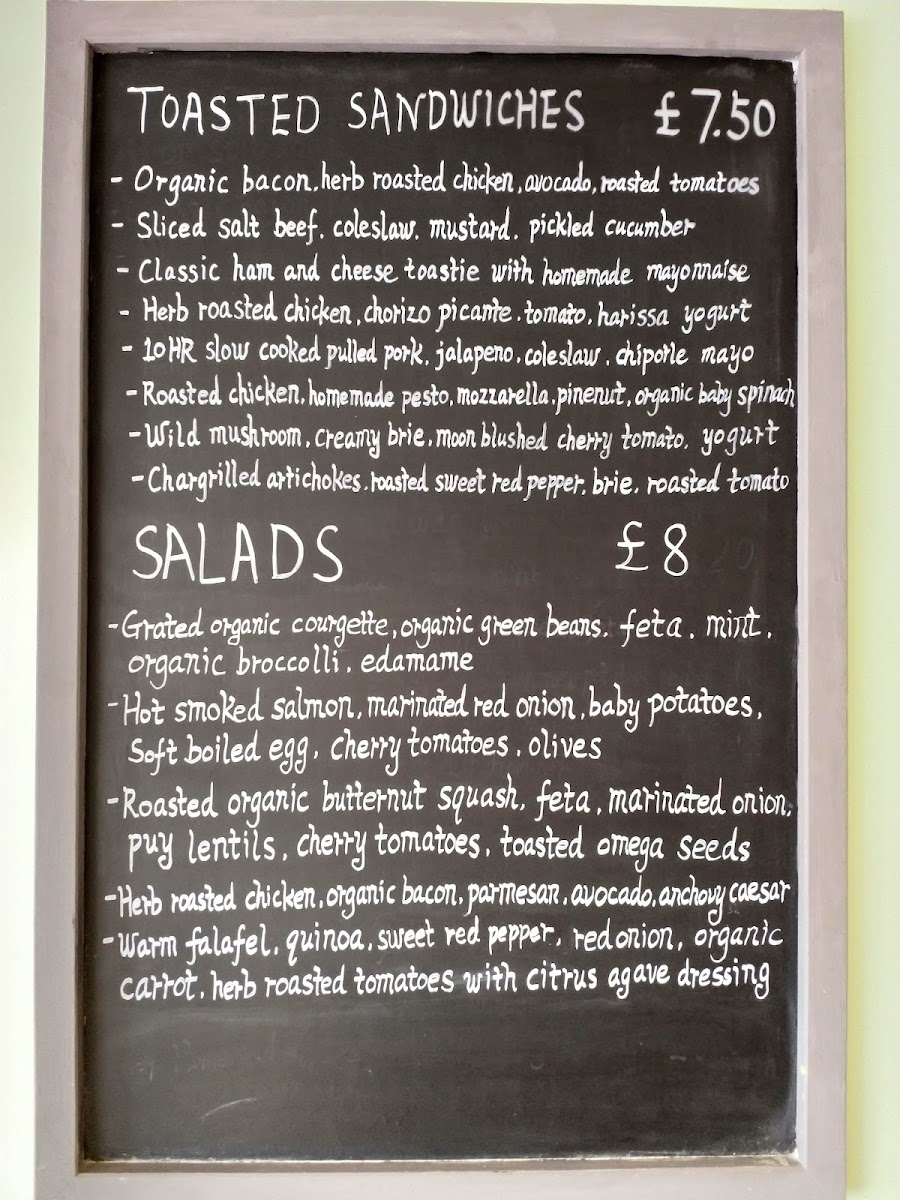 TOASTED SANDWICHES £7.50
- Organic bacon, herb roasted chicken, avocado, roasted tomatoes
- Sliced salt beef, coleslaw, mustard, pickled cucumber
- Classic ham and cheese toastie with homemade mayonnaise
- Herb roasted chicken, chorizo picante, tomato, harissa yogurt
- 10HR slow cooked pulled pork, jalapeno, coleslaw, chipotle mayo
- Roasted chicken, homemade pesto, mozzarella, pinenut, organic baby spinach
- Wild mushroom, creamy brie, moon blushed cherry tomato, yogurt
- Chargrilled artichokes, roasted sweet red pepper, brie, roasted tomato
SALADS £8
- Grated organic courgette, organic green beans, feta, mint,
organic broccolli, edamame
- Hot smoked salmon, marinated red onion, baby potatoes,
Soft boiled egg, cherry tomatoes, olives
- Roasted organic butternut squash, feta, marinated onion,
puy lentils, cherry tomatoes, toasted omega seeds
- Herb roasted chicken, organic bacon, parmesan, avocado, anchovy caesar
- Warm falafel, quinoa, sweet red pepper, red onion, organic
carrot, herb roasted tomatoes with citrus agave dressing